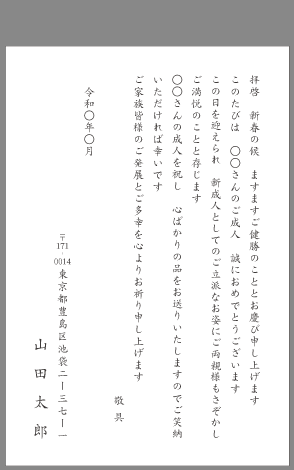 拝啓　新春の候　ますますご健勝のこととお慶び申し上げます
このたびは　〇〇さんのご成人　誠におめでとうございます
この日を迎えられ　新成人としてのご立派なお姿にご両親様もさぞかし
ご満悦のことと存じます
〇〇さんの成人を祝し　心ばかりの品をお送りいたしますのでご笑納
いただければ幸いです
ご家族皆様のご発展とご多幸を心よりお祈り申し上げます
敬具
令和〇年〇月
〒171-0014東京都豊島区池袋二ー三七ー一
山田太郎